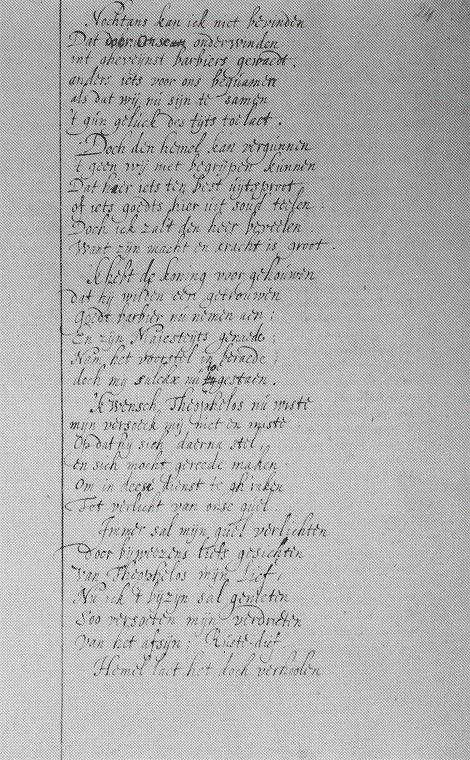 24
Nochtans kan ick niet bevinden
Dat onderwinden
int gheveynst barbiers gewaedt,
anders iets voor ons bequamen
als dat wij nu sijn te samen
't gun geluck des tyts toelaet.
Doch den hemel kan vergunnen
't geen wij niet begrijpen kunnen
Dat hier iets ten best uijtsproot
of iets goedts hier uit soud teelen
Doch ick zalt den heer beveelen
Want zijn macht en kracht is groot.
ik hebt de koning voor gehouwen
dat hij wilden een getrouwen
Goedt barbier nu nemen aen;
En zijn Majesteyts genaede
Nam het voorstel in beraede;
doch my sulckx nu toegestaen.
'k Wensch, Theophelos nu wiste
mijn versoeck mij niet en miste
Op dat hij sich daerna stel,
en sich mocht gereede maken
Om in deese dienst te gh'raken
Tot verlicht van onse quel.
Immer sal mijn quel verlichten
door bijweezens liefs gesichten
van Theophelos mijn Lief,
Nu ick 't bijzijn sal genieten
Soo versoeten mijn verdrieten
van het afsijn; Ruste-dief.
Hemel laet het doch verhoolen